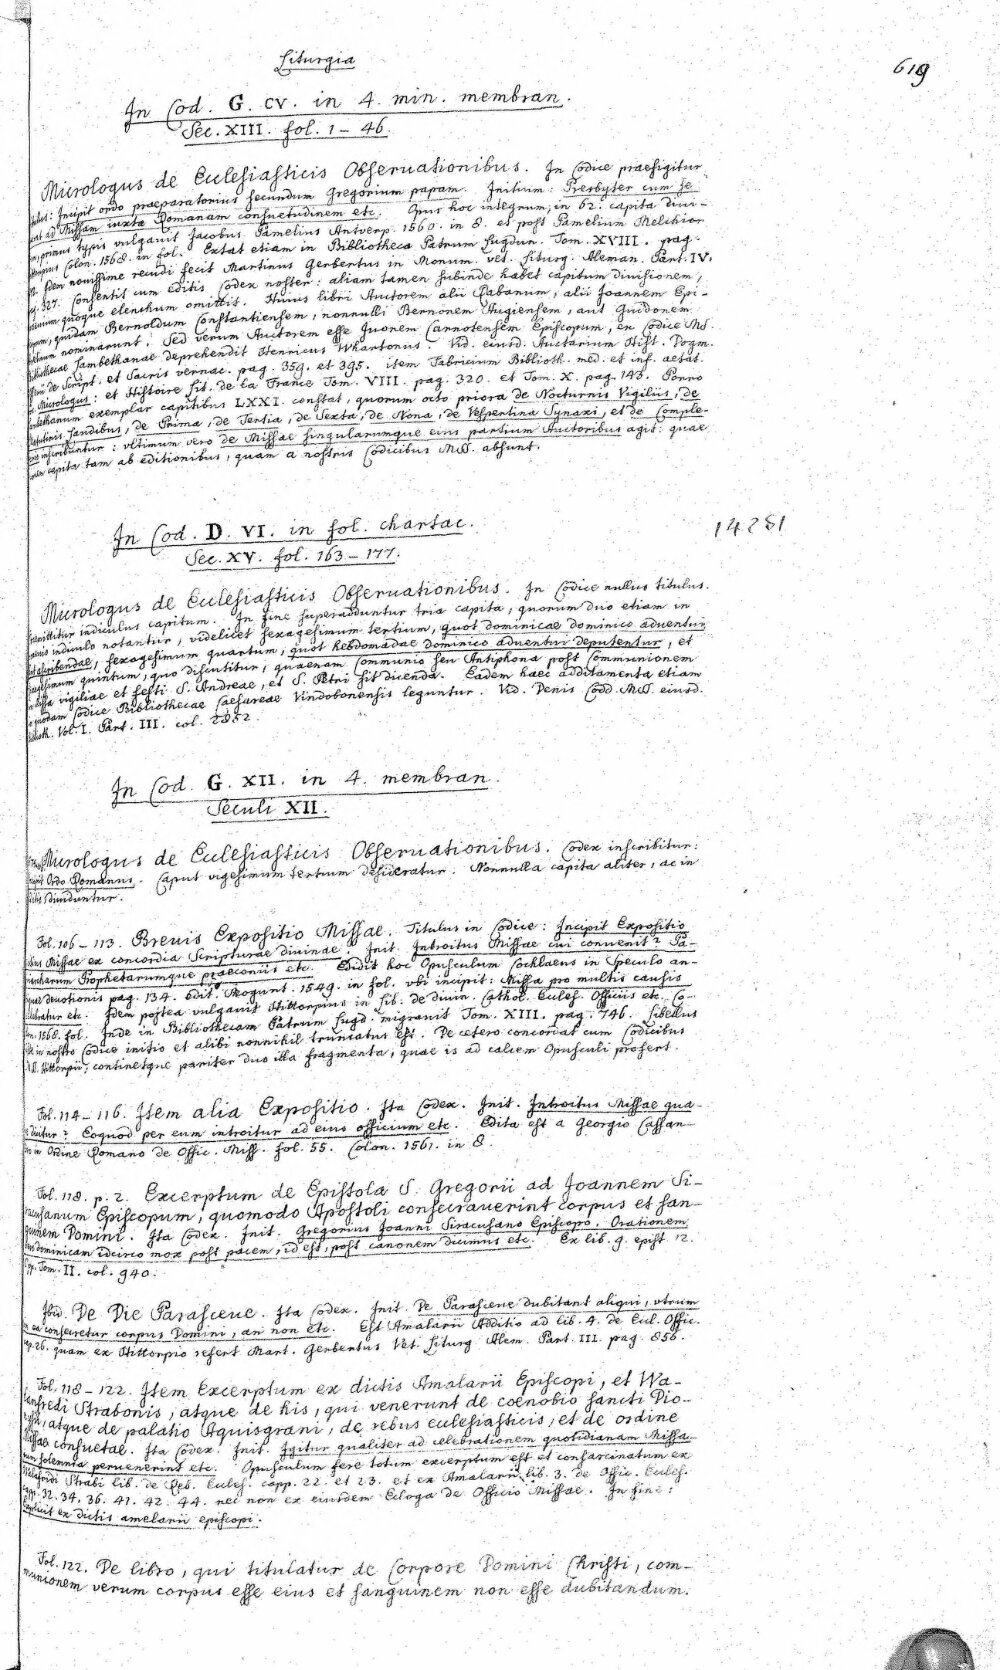 Liturgia
619
In Cod. G. CV. in 4. min. membran.
Sec. XIII. fol. 1 – 46.
Micrologus de Ecclesiasticis Obseruationibus. In Codice praefigitur
Incipit ordo praeparatorius secundum Gregorium papam. Initium: Presbyter cum se
ad Missam iuxta Romanam consuetudinem etc. Opus hoc integrum, in 62. capita diui-
primus typis vulgauit Jacobus Pamelius Antverp. 1560. in 8. et post Pamelium Melchior
Colon. 1568. in fol. Extat etiam in Bibliotheca Patrum Lugdun. Tom. XVIII. pag.
Idem nouissime recudi fecit Martinus Gerbertus in Monum. vet. Liturg. Aleman. Part. IV.
pag. 327. Consentit cum editis Codex noster: aliam tamen subinde habet capitum diuisionem,
quoque elenchum omittit. Huius libri Auctorem alii Rabanum, alii Joannem Epi-
quidam Bernoldum Constantiensem, nonnulli Bernonem Augiensem, aut Guidonem
nominarunt. Sed verum Auctorem esse Juonem Carnotensem Episcopum, ex Codice MS.
Bibliothecae Lambethanae deprehendit Henricus Whartonus. Vid. eiusd. Auctarium Hist. Dogm.
de Script. et Sacris vernac. pag. 359. et 395. item Fabricium Biblioth. med. et inf. aetat.
Micrologus: et Histoire Lit. de la France Tom. VIII. pag. 320. et Tom. X. pag. 143. Porro
Lambethanum exemplar capitibus LXXI. constat, quorum octo priora de Nocturnis Vigiliis, de
Matutinis Laudibus, de Prima, de Tertia, de Sexta, de Nona, de Vespertina Synaxi, et de Comple-
inscribuntur: vltimum vero de Missae singularumque eius partium Auctoribus agit: quae
capita tam ab editionibus, quam a nostris Codicibus MSS. absunt.
In Cod. D. VI. in fol. chartac.
14281
Sec. XV. fol. 163 – 177.
Micrologus de Ecclesiasticis Obseruationibus. In Codice nullus titulus.
indiculus capitum. In fine superadduntur tria capita, quorum duo etiam in
indiculo notantur, videlicet sexagesimum tertium, quot dominicae dominico aduentui
sexagesimum quartum, quot hebdomadae dominico aduentui deputentur, et
quintum, quo discutitur, quaenam Communio seu Antiphona post Communionem
vigiliae et festi S. Andreae, et S. Petri sit dicenda. Eadem haec additamenta etiam
Codice Bibliothecae Caesareae Vindobonensis leguntur. Vid. Denis Codd. MSS. eiusd.
Biblioth. Vol. I. Part. III. col. 2852.
In Cod. G. XII. in 4. membran.
Seculi XII.
Micrologus de Ecclesiasticis Obseruationibus. Codex inscribitur:
Ordo Romanus. Caput vigesimum tertium desideratur. Nonnulla capita aliter, ac in
diuiduntur.
Fol. 106 – 113. Breuis Expositio Missae. Titulus in Codice: Incipit Expositio
Missae ex concordia Scripturae diuinae. Init. Introitus Missae cui conuenit? Pa-
triarcharum Prophetarumque praeconiis etc. Edidit hoc Opusculum Cochlaeus in Speculo an-
deuotionis pag. 134. edit. Mogunt. 1549. in fol. vbi incipit: Missa pro multis causis
celebratur etc. Idem postea vulgauit Hittorpius in Lib. de diuin. Cathol. Eccles. Officiis etc. Co-
lon. 1568. fol. Inde in Bibliothecam Patrum Lugd. migrauit Tom. XIII. pag. 746. Libellus
in nostro Codice initio et alibi nonnihil truncatus est. De cetero concordat cum Codicibus
Hittorpii; continetque pariter duo illa fragmenta, quae is ad calcem Opusculi profert.
Fol. 114 – 116. Item alia Expositio. Ita Codex. Init. Introitus Missae qua-
re dicitur? Eoquod per eum introitur ad eius officium etc. Edita est a Georgio Cassan-
in Ordine Romano de Offic. Miss. fol. 55. Colon. 1561. in 8.
Fol. 118. p. 2. Excerptum de Epistola S. Gregorii ad Joannem Si-
racusanum Episcopum, quomodo Apostoli consecrauerint corpus et san-
guinem Domini. Ita Codex. Init. Gregorius Joanni Siracusano Episcopo. Orationem
dominicam idcirco mox post pacem, id est, post canonem dicimus etc. Ex lib. 9. epist 12.
Opp. Tom. II. col. 940.
Ibid. De Die Parasceue. Ita Codex. Init. De Parasceue dubitant aliqui, vtrum
in ea consecretur corpus Domini, an non etc. Est Amalarii Additio ad lib. 4. de Eccl. Offic.
cap. 26. quam ex Hittorpio refert Mart. Gerbertus Vet. Liturg. Alem. Part. III. pag. 856.
Fol. 118 – 122. Item Excerptum ex dictis Amalarii Episcopi, et Wa-
lanfredi Strabonis, atque de his, qui venerunt de coenobio sancti Dio-
atque de palatio Aquisgrani, de rebus ecclesiasticis, et de ordine
Missae consuetae. Ita Codex. Init. Igitur qualiter ad celebrationem quotidianam Missa-
rum solennia peruenerint etc. Opusculum fere totum excerptum est et consarcinatum ex
Strabi lib. de Reb. Eccles. capp. 22. et 23. et ex Amalarii lib. 3. de Offic. Eccles.
capp. 32. 34. 36. 41. 42. 44. nec non ex eiusdem Ecloga de Officio Missae. In fine:
Explicit ex dictis amelarii episcopi.
Fol. 122. De libro, qui titulatur de Corpore Domini Christi, com-
munionem verum corpus esse eius et sanguinem non esse dubitandum.